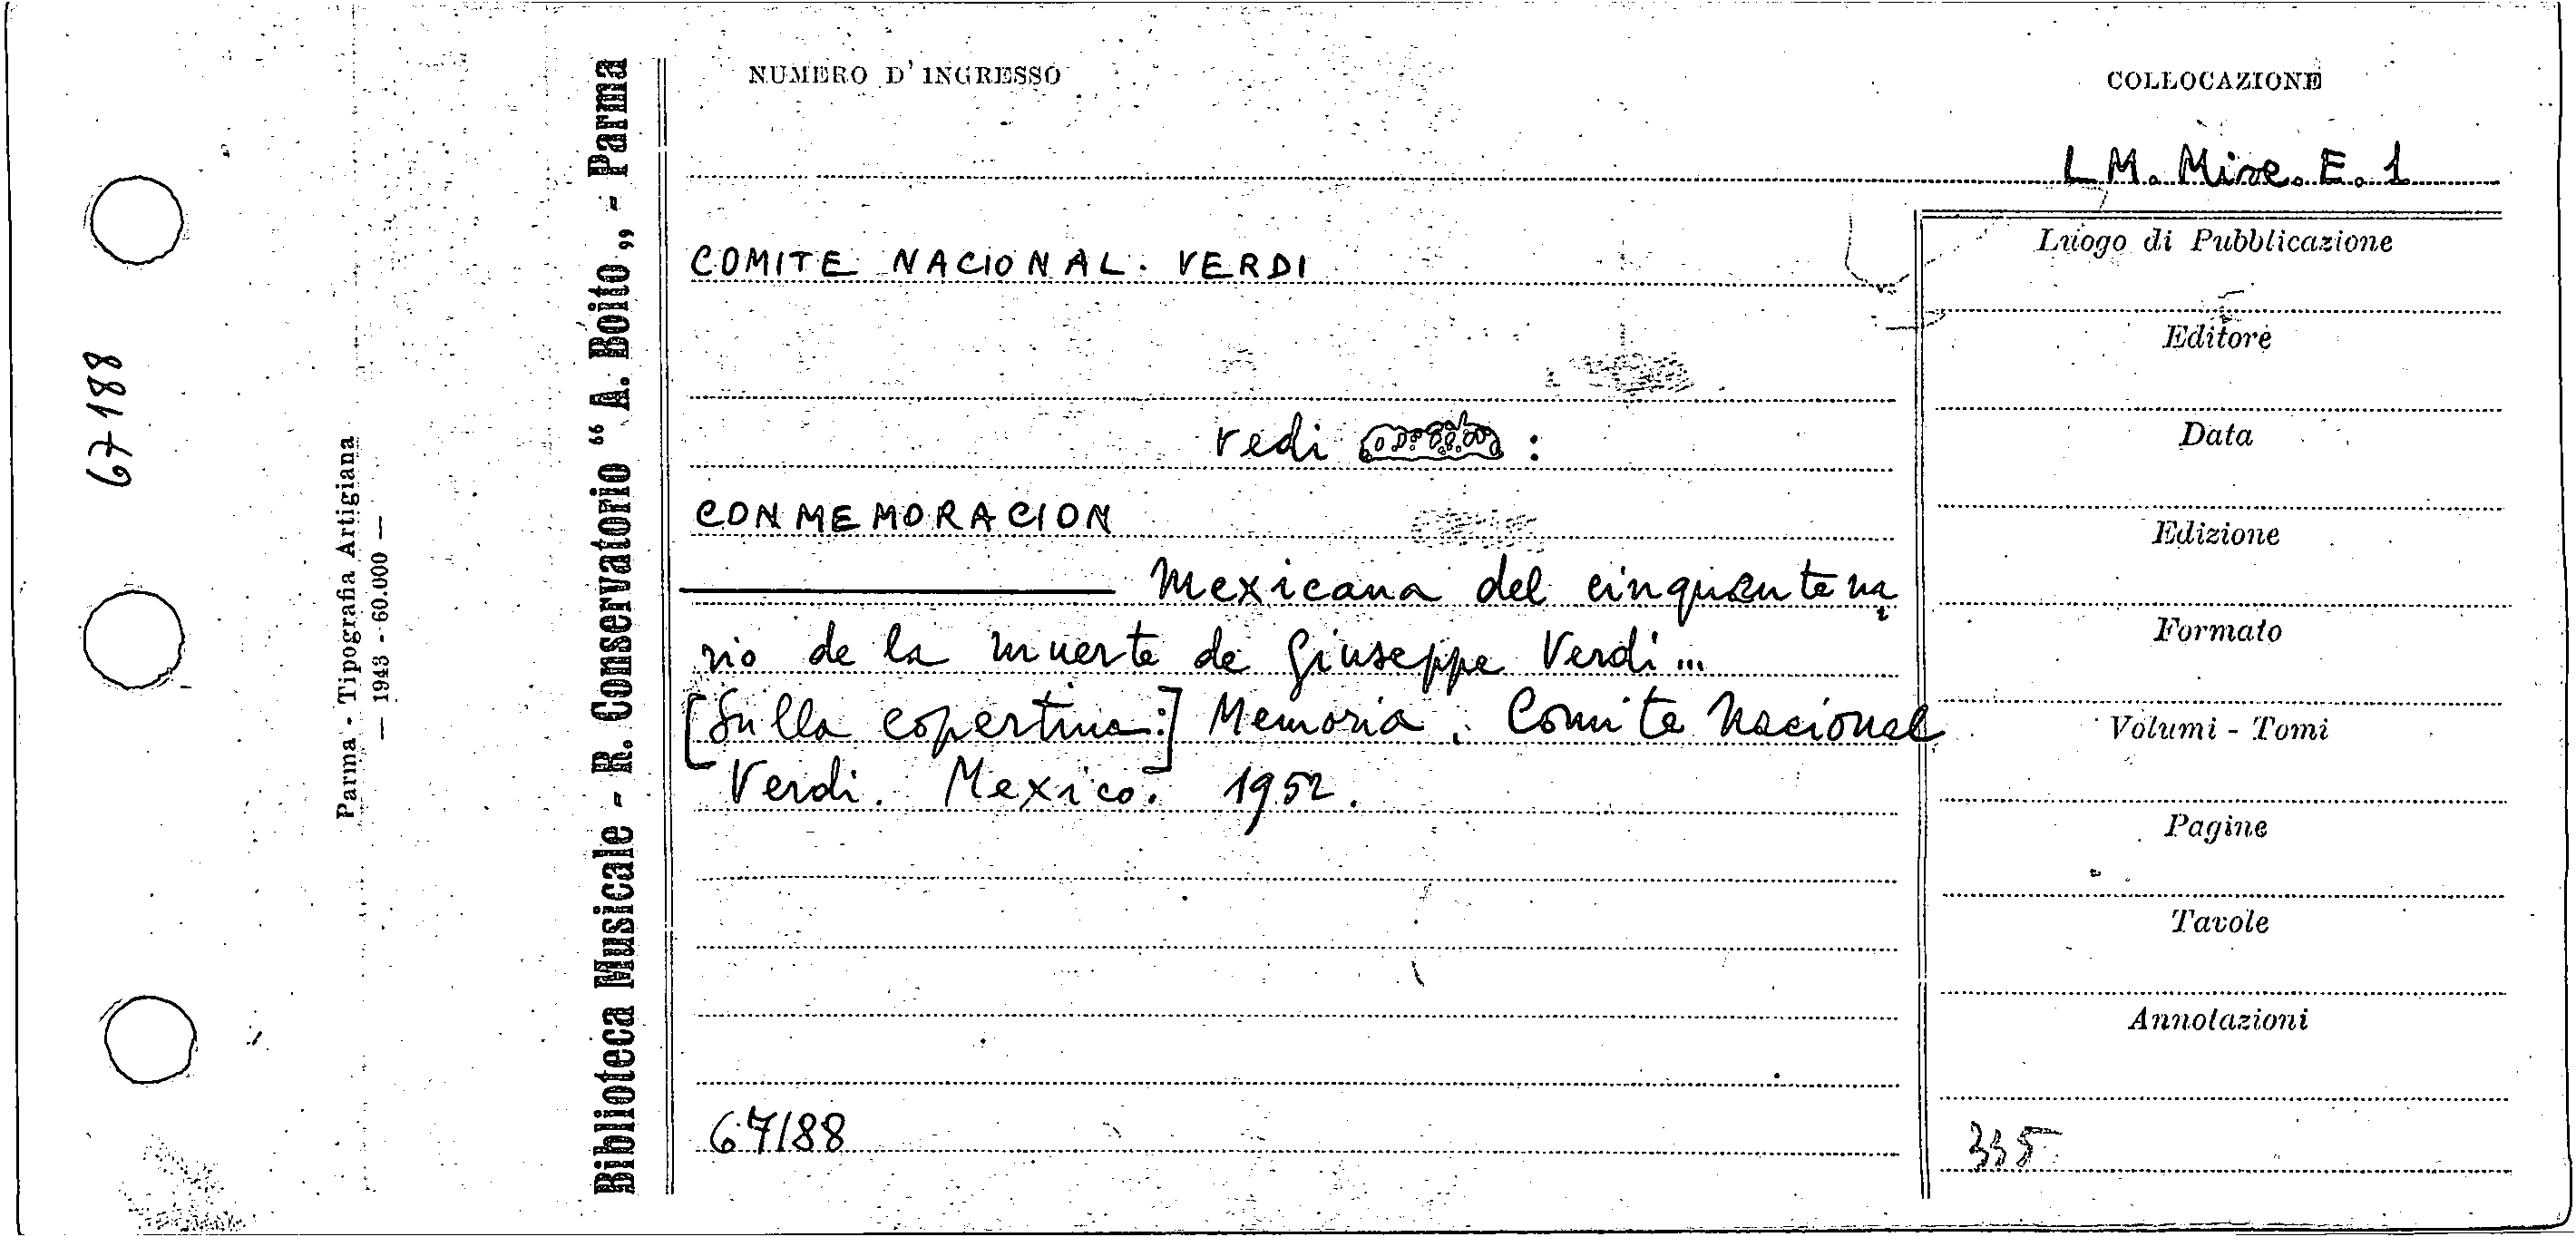 NUMERO D'INGRESSO
COLLOCAZIONE
L M. Misc. E. 1
COMITE NACIONAL VERDI
vedi :
CONMEMORACION
Mexicana del cinquantena
rio de la muerte de Giuseppe Verdi...
[Sulla copertina:] Memoria. Comite Nacional
Verdi. Mexico. 1952.
67188
Luogo di Pubblicazione
Editore
Data
Edizione
Formato
Volumi - Tomi
Pagine
Tavole
Annotazioni
335
Biblioteca Musicale - R. Conservatorio “ A. Boito „ - Parma
Parma - Tipografia Artigiana
— 1943 - 60.000 —
67188